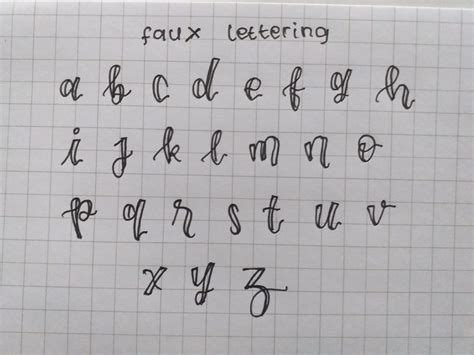 faux lettering
a b c d e f g h
i j k l m n o
p q r s t u v
x y z